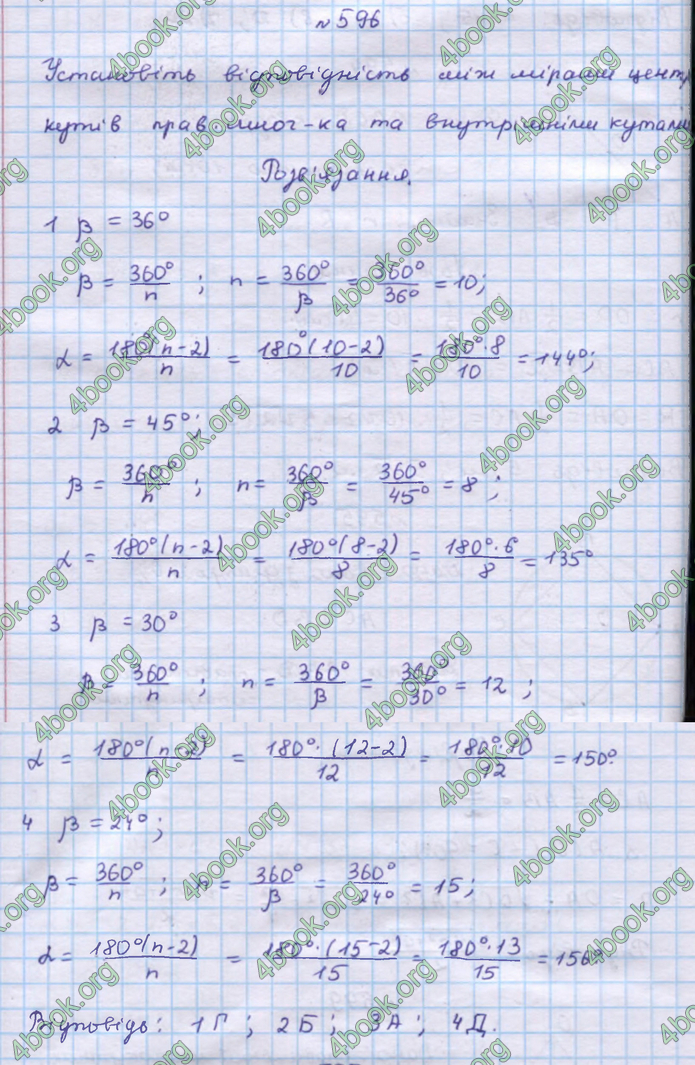 № 596
Установіть відповідність між мірами центр
кутів прав. мног-ка та внутрішніми кутами
Розв'язання.
1 β = 36°
β = 360°/n ; n = 360°/β = 360°/36° = 10;
α = 180°(n-2)/n = 180°(10-2)/10 = 180°·8/10 = 144°;
2 β = 45°;
β = 360°/n ; n = 360°/β = 360°/45° = 8 ;
α = 180°(n-2)/n = 180°(8-2)/8 = 180°·6/8 = 135°
3 β = 30°
β = 360°/n ; n = 360°/β = 360°/30° = 12 ;
α = 180°(n-2)/n = 180°·(12-2)/12 = 180°·10/12 = 150°.
4 β = 24°;
β = 360°/n ; n = 360°/β = 360°/24° = 15;
α = 180°(n-2)/n = 180°·(15-2)/15 = 180°·13/15 = 156°
Відповідь: 1Г ; 2Б ; 3А ; 4Д.
4book.org